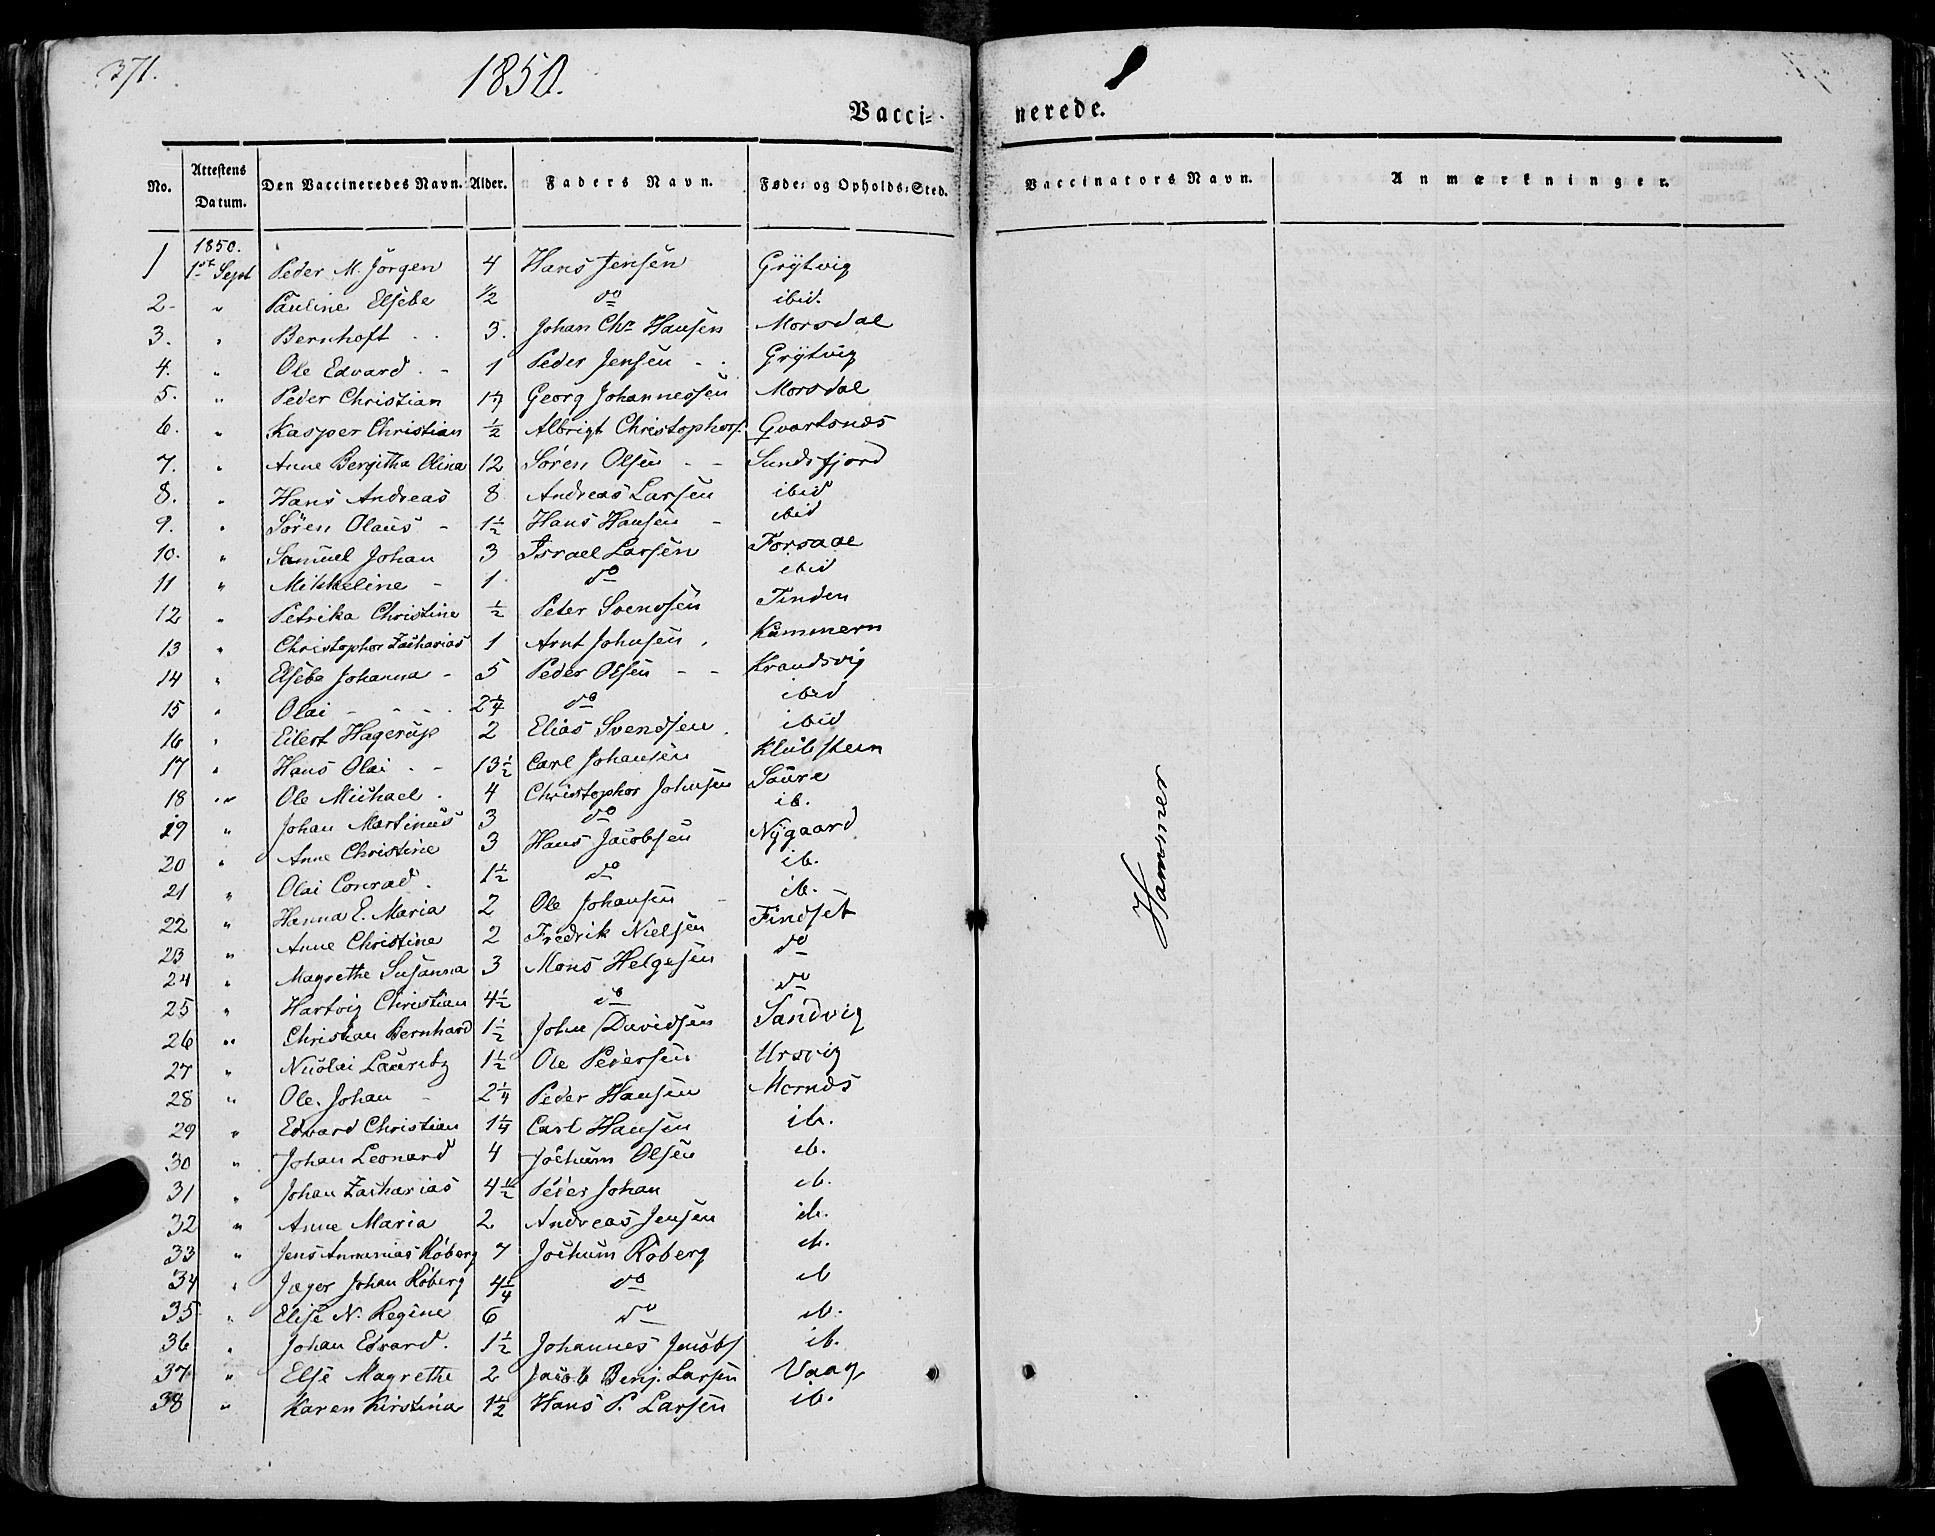 371.
1850.
Vacci-
nerede.
No. Attestens Datum. Den Vaccineredes Navn. Alder. Faders Navn. Føde- og Opholds-Sted. Vaccinators Navn. Anmærkninger.
1850.
1 1st Sept Peder M. Jörgen 4 Hans Jensen Grÿtvig
2 " Pauline Elsebe 1/2 do ibid.
3. " Bernhoft 3. Johan Chr Hansen Morsdal
4. " Ole Edvard 1 Peder Jensen Grÿtvig
5. " Peder Christian Georg Johannessen Morsdal
6. " Kasper Christian 1/2 Albrigt Christophors. Qvartsnæs
7. " Anne Bergitha Olina 12 Sören Olsen Sundsfjord
8. " Hans Andreas 8 Andreas Larsen ibid
9. " Sören Olaus 1 1/2 Hans Hansen ibid
10. " Samuel Johan 3 Israel Larsen Forsaae
11 " Mikkeline 1. do ibid
12 " Petrika Christine 1/2 Peter Svendsen Tinden
13 " Christophor Zacharias 1 Arnt Johnsen Kammern
14 " Elsebe Johanna 5 Peder Olsen Krandsvig
15 " Olai 2 1/4 do ibid
16 " Eilert Hagerup 2 Elias Svendsen ibid
17 " Hans Olai 13 1/2 Carl Johansen Klubsteen
18 " Ole Michael 4 Christophor Johnsen Saure
19 " Johan Martinus 3 do ib.
20 " Anne Christine 3 Hans Jacobsen Nÿgaard
21 " Olai Conrad 1 1/2 do ib.
22 " Hanna E. Maria 2 Ole Johansen ib.
23 " Anne Christine 2 Fredrik Nielsen Findset
24 " Magrethe Susanna 3 Mons Helgesen do
25 " Hartvig Christian 4 1/2 do do
26 " Christian Bernhard 1 1/2 John Davidsen Sandvig
27 " Nicolai Lauritz 1 1/2 Ole Pedersen Ursvig
28 " Ole Johan 2 1/4 Peder Hansen Mernæs
29 " Edvard Christian 1 1/4 Carl Hansen ib.
30 " Johan Leonard 4 Jochum Olsen ib.
31 " Johan Zacharias 4 1/2 Peder Johan ib.
32 " Anne Maria 2 Andreas Jensen ib.
33 " Jens Annanias Röberg 7 Jochum Röberg ib.
34 " Jæger Johan Röberg 4 1/4 do ib
35 " Elise N. Regine 6 do ib.
36 " Johan Edvard. 1 1/2 Johannes Jacobs ib.
37 " Else Magrethe 2 Jacob Benj. Larsen Vaag
38 " Karen Kirstina 1 1/2 Hans P. Larsen ib.
Hammer